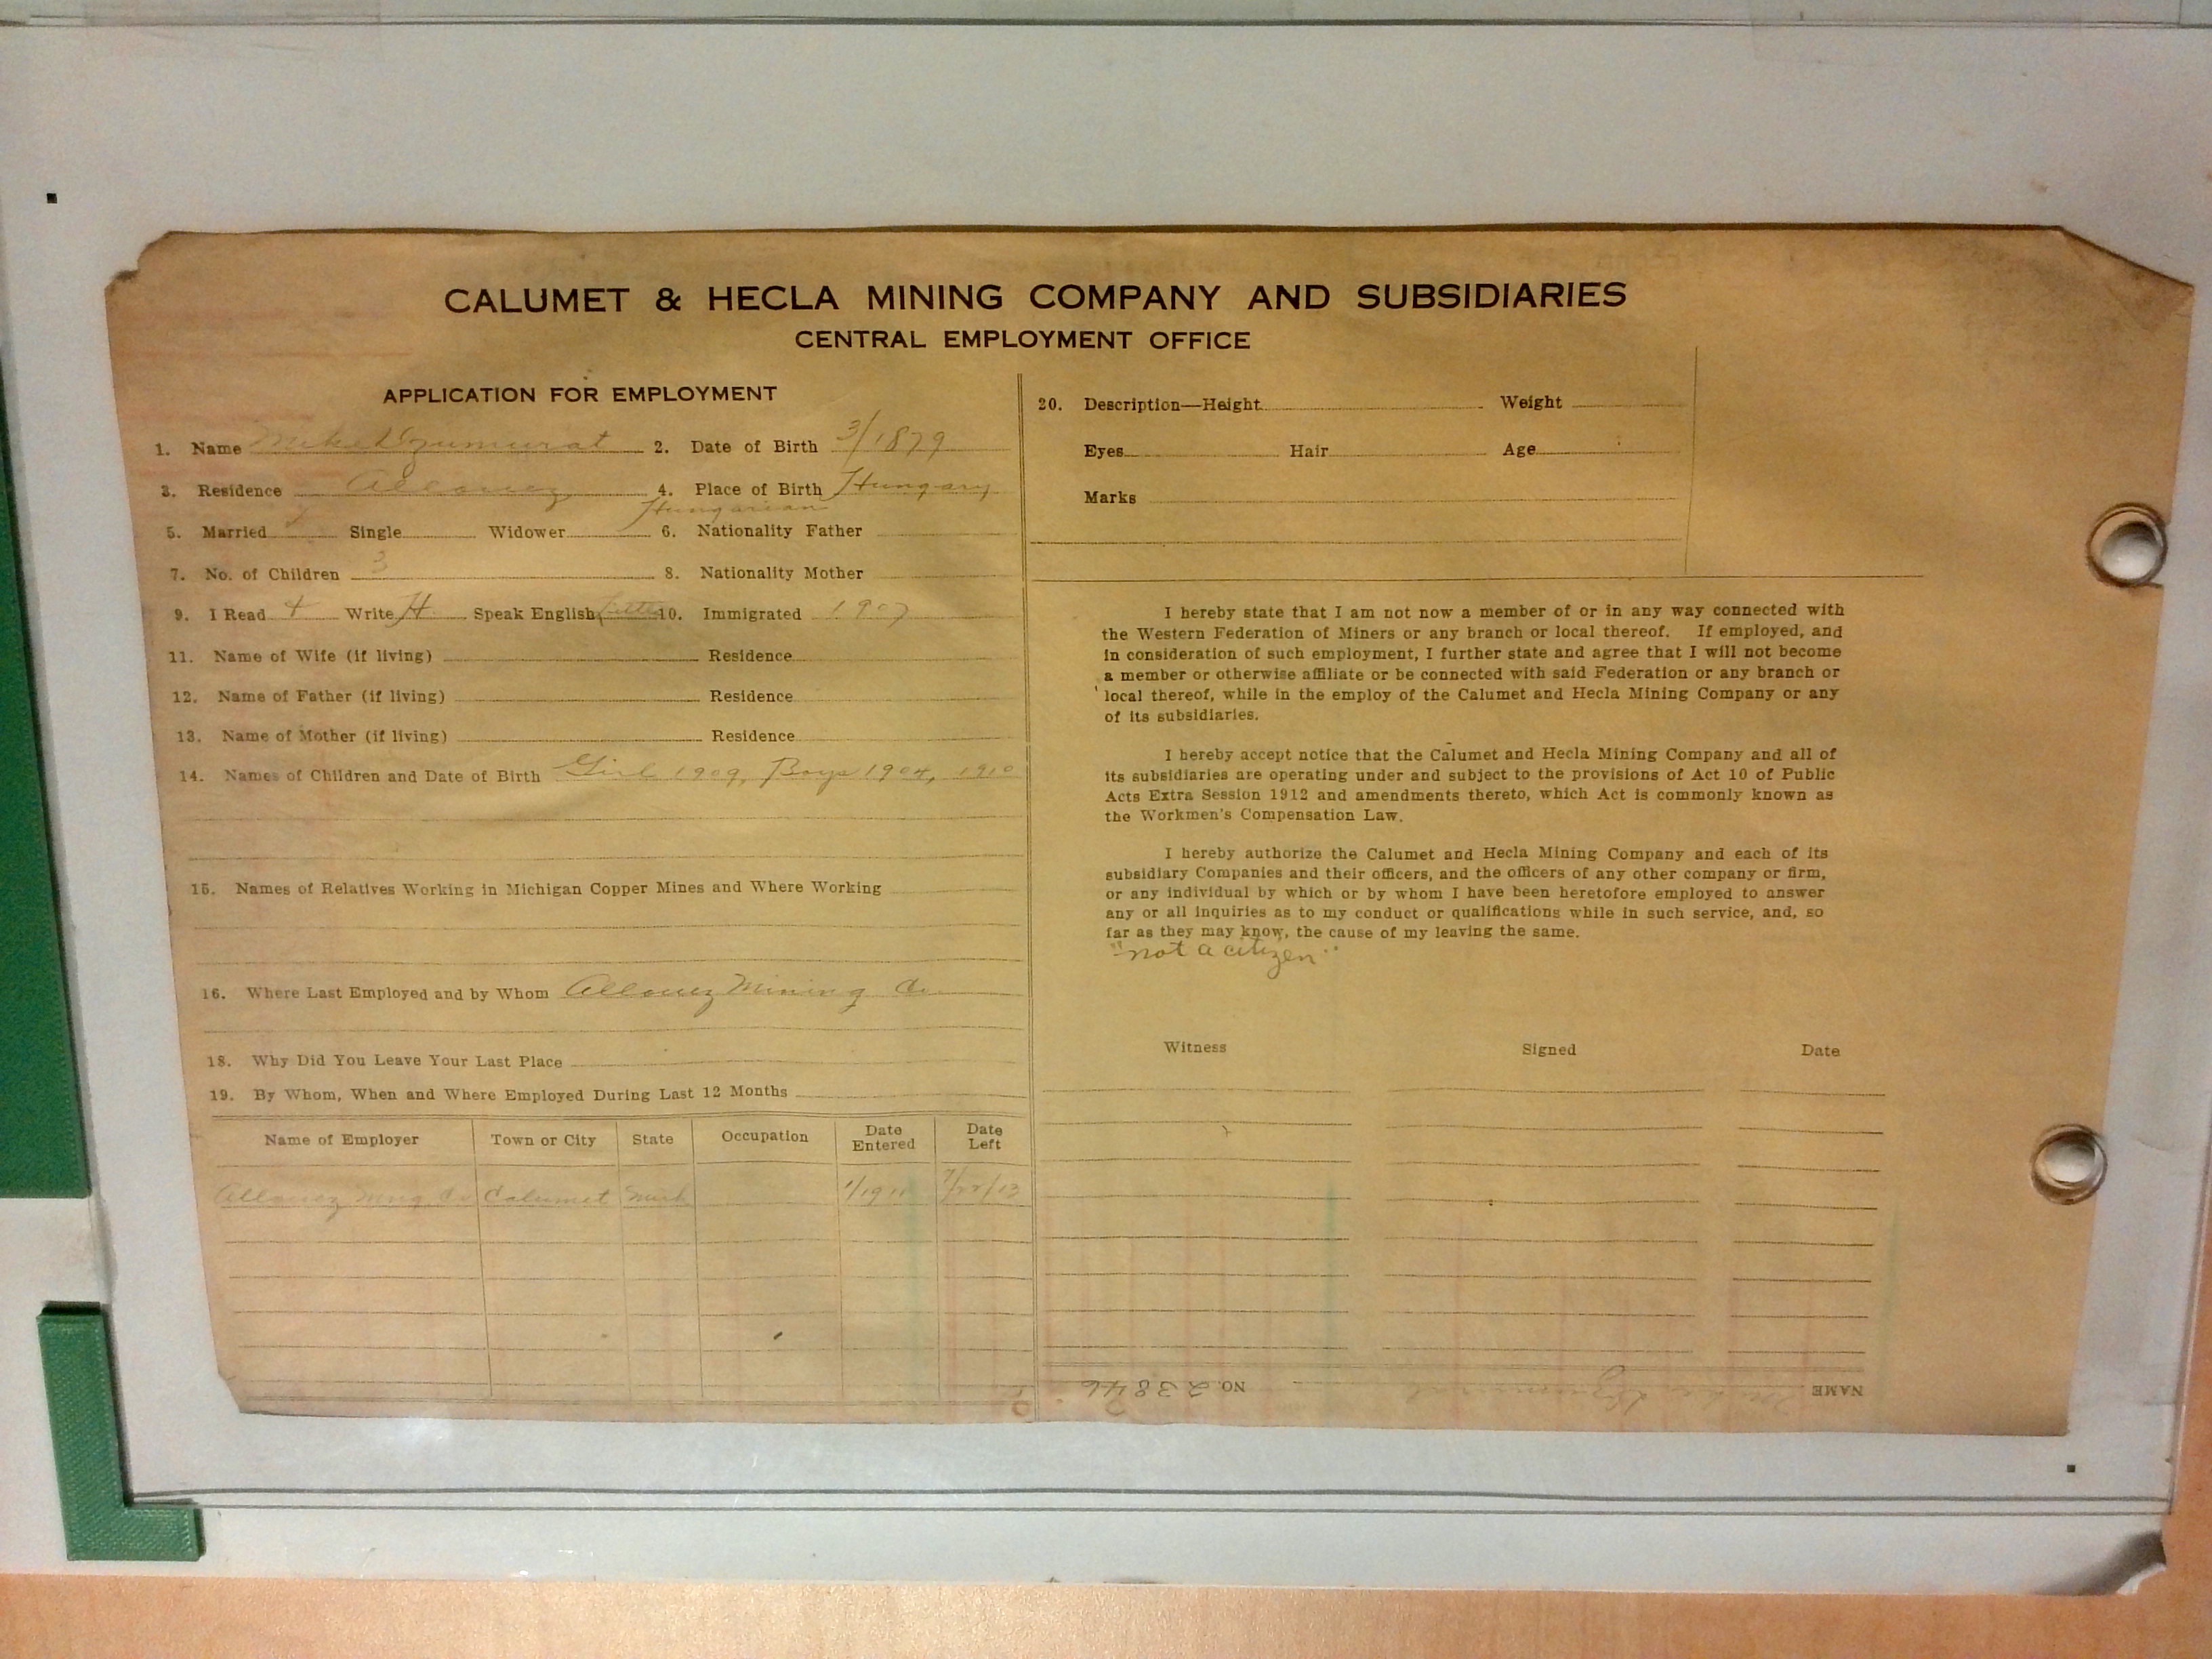 CALUMET & HECLA MINING COMPANY AND SUBSIDIARIES
CENTRAL EMPLOYMENT OFFICE
APPLICATION FOR EMPLOYMENT
1. Name Mike 2. Date of Birth 3/1879
3. Residence Allouez 4. Place of Birth Hungary
Hungarian
5. Married Single Widower 6. Nationality Father
7. No. of Children 3 8. Nationality Mother
9. I Read Write H. Speak English little 10. Immigrated 1907
11. Name of Wife (if living) Residence
12. Name of Father (if living) Residence
13. Name of Mother (if living) Residence
14. Names of Children and Date of Birth Girl 1909, Boys 1904, 1910
15. Names of Relatives Working in Michigan Copper Mines and Where Working
16. Where Last Employed and by Whom Allouez Mining Co.
18. Why Did You Leave Your Last Place
19. By Whom, When and Where Employed During Last 12 Months
Name of Employer Town or City State Occupation Date Entered Date Left
Allouez Mng. Co Calumet Mich 1/1911 7/22/13
20. Description—Height Weight
Eyes Hair Age
Marks
I hereby state that I am not now a member of or in any way connected with
the Western Federation of Miners or any branch or local thereof. If employed, and
in consideration of such employment, I further state and agree that I will not become
a member or otherwise affiliate or be connected with said Federation or any branch or
local thereof, while in the employ of the Calumet and Hecla Mining Company or any
of its subsidiaries.
I hereby accept notice that the Calumet and Hecla Mining Company and all of
its subsidiaries are operating under and subject to the provisions of Act 10 of Public
Acts Extra Session 1912 and amendments thereto, which Act is commonly known as
the Workmen's Compensation Law.
I hereby authorize the Calumet and Hecla Mining Company and each of its
subsidiary Companies and their officers, and the officers of any other company or firm,
or any individual by which or by whom I have been heretofore employed to answer
any or all inquiries as to my conduct or qualifications while in such service, and, so
far as they may know, the cause of my leaving the same.
"not a citizen"
Witness Signed Date
NAME Mike NO. 23846